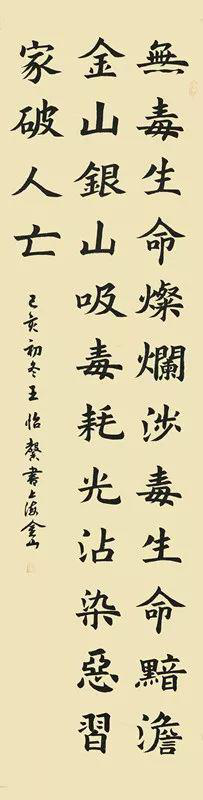 無毒生命燦爛涉毒生命黯澹
金山銀山吸毒耗光沾染惡習
家破人亡
己亥初冬王怡馨書上海金山